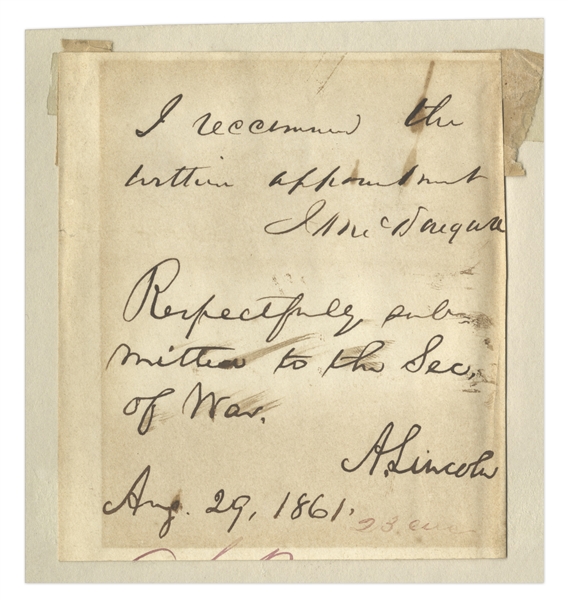 I recommend the
within appointment
J A McDougall
Respectfully sub-
mitted to the Sec.
of War.
A. Lincoln
Aug. 29, 1861.